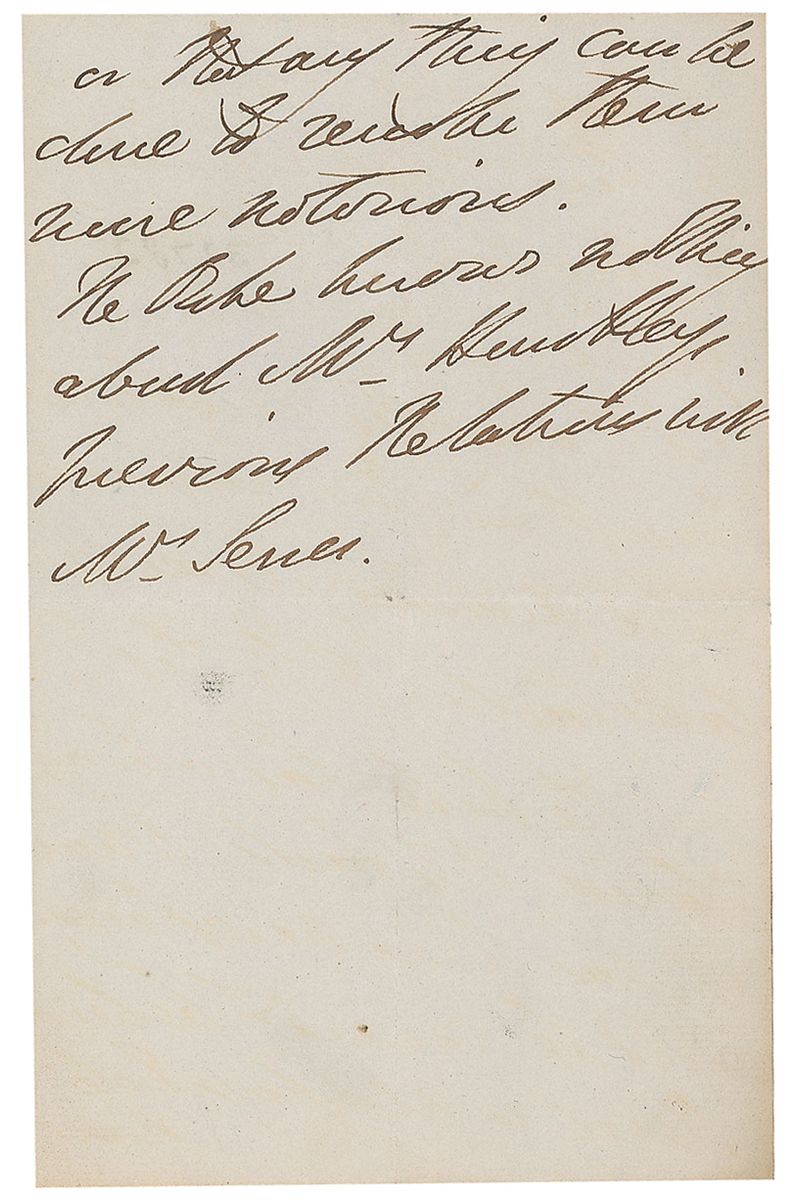 or that any thing can be
done to render them
more notorious.
The Duke knows nothing
about Mrs
previous Relations with
Mrs Serres.